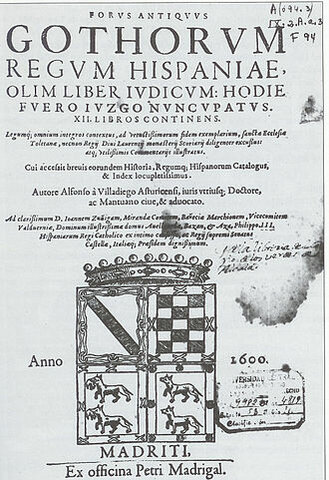 FORUS ANTIQVUS
GOTHORVM
REGVM HISPANIAE,
OLIM LIBER IVDICUM: HODIE
FVERO IVZGO NVNCVPATVS.
XII. LIBROS CONTINENS.
Legumq; omnium integros contextus, ad vetustissimorum fidem exemplarium, sanctæ Ecclesiæ
Toletanæ, necnon Regij Diui Laurentij monasterij Scorialis diligenter excussus:
atq; vtilissimis Commentarijs illustratus.
Cui accessit breuis eorundem Historia, Regumq; Hispanorum Catalogus,
& Index locupletissimus.
Autore Alfonso à Villadiego Asturicensi, iuris vtriusq; Doctore,
ac Mantuano ciue, & aduocato.
Ad clarissimum D. Ioannem Zuñigam, Miranda Bañecia Marchionem, Vicecomitem
Valduernia, Dominum illustrissima domus Bazan, & Aza, Philippi.III.
Hispaniarum Regis Catholico ex intimo Regij supremi Senatus
Castella, Italiæq; Præsidem dignissimum.
Anno 1600.
MADRITI,
Ex officina Petri Madrigal.
F 94